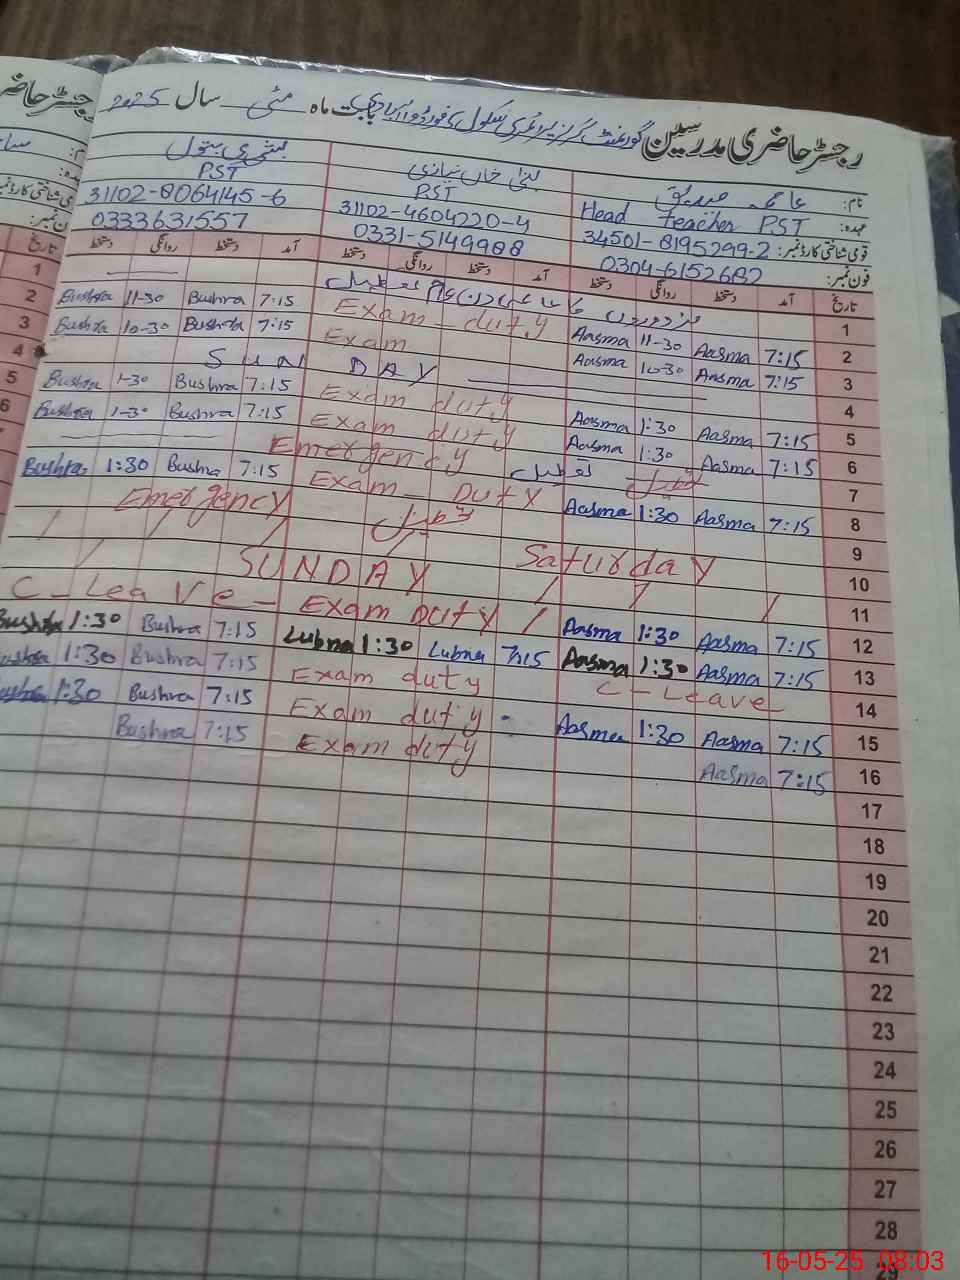 رجسٹر حاضری مدرسین گورنمنٹ گرلز پرائمری سکول بابت ماہ مئی سال 2025
نام: عاصمہ صدیق
لبنیٰ خان نیازی
بشریٰ بتول
عہدہ: Head teacher PST
PST
PST
قومی شناختی کارڈ نمبر: 34501-8195299-2
31102-4604220-4
31102-8064145-6
فون نمبر: 0304-6152682
0331-5149988
0333631557
تاریخ آمد دستخط روانگی دستخط آمد دستخط روانگی دستخط آمد دستخط روانگی دستخط
1 مزدوروں کا عالمی دن عام تعطیل
2 7:15 Aasma 11-30 Aasma Exam - duty 7:15 Bushra 11-30 Bushra
3 7:15 Aasma 10-30 Aasma Exam 7:15 Bushra 10-30 Bushra
4 SUN DAY
5 7:15 Aasma 1:30 Aasma Exam duty 7:15 Bushra 1-30 Bushra
6 7:15 Aasma 1:30 Aasma Exam duty 7:15 Bushra 1-30 Bushra
7 Emergency تعطیل
8 7:15 Aasma 1:30 Aasma Exam - Duty 7:15 Bushra 1:30 Bushra
9 Emergency تعطیل
10 Saturday
11 SUNDAY
12 7:15 Aasma 1:30 Aasma Exam Duty C-Leave-
13 7:15 Aasma 1:30 Aasma 7:15 Lubna 1:30 Lubna 7:15 Bushra 1:30 Bushra
14 C-Leave Exam duty 7:15 Bushra 1:30 Bushra
15 7:15 Aasma 1:30 Aasma Exam duty 7:15 Bushra 1:30 Bushra
16 7:15 Aasma Exam duty 7:15 Bushra
17
18
19
20
21
22
23
24
25
26
27
28
29
16-05-25 08:03